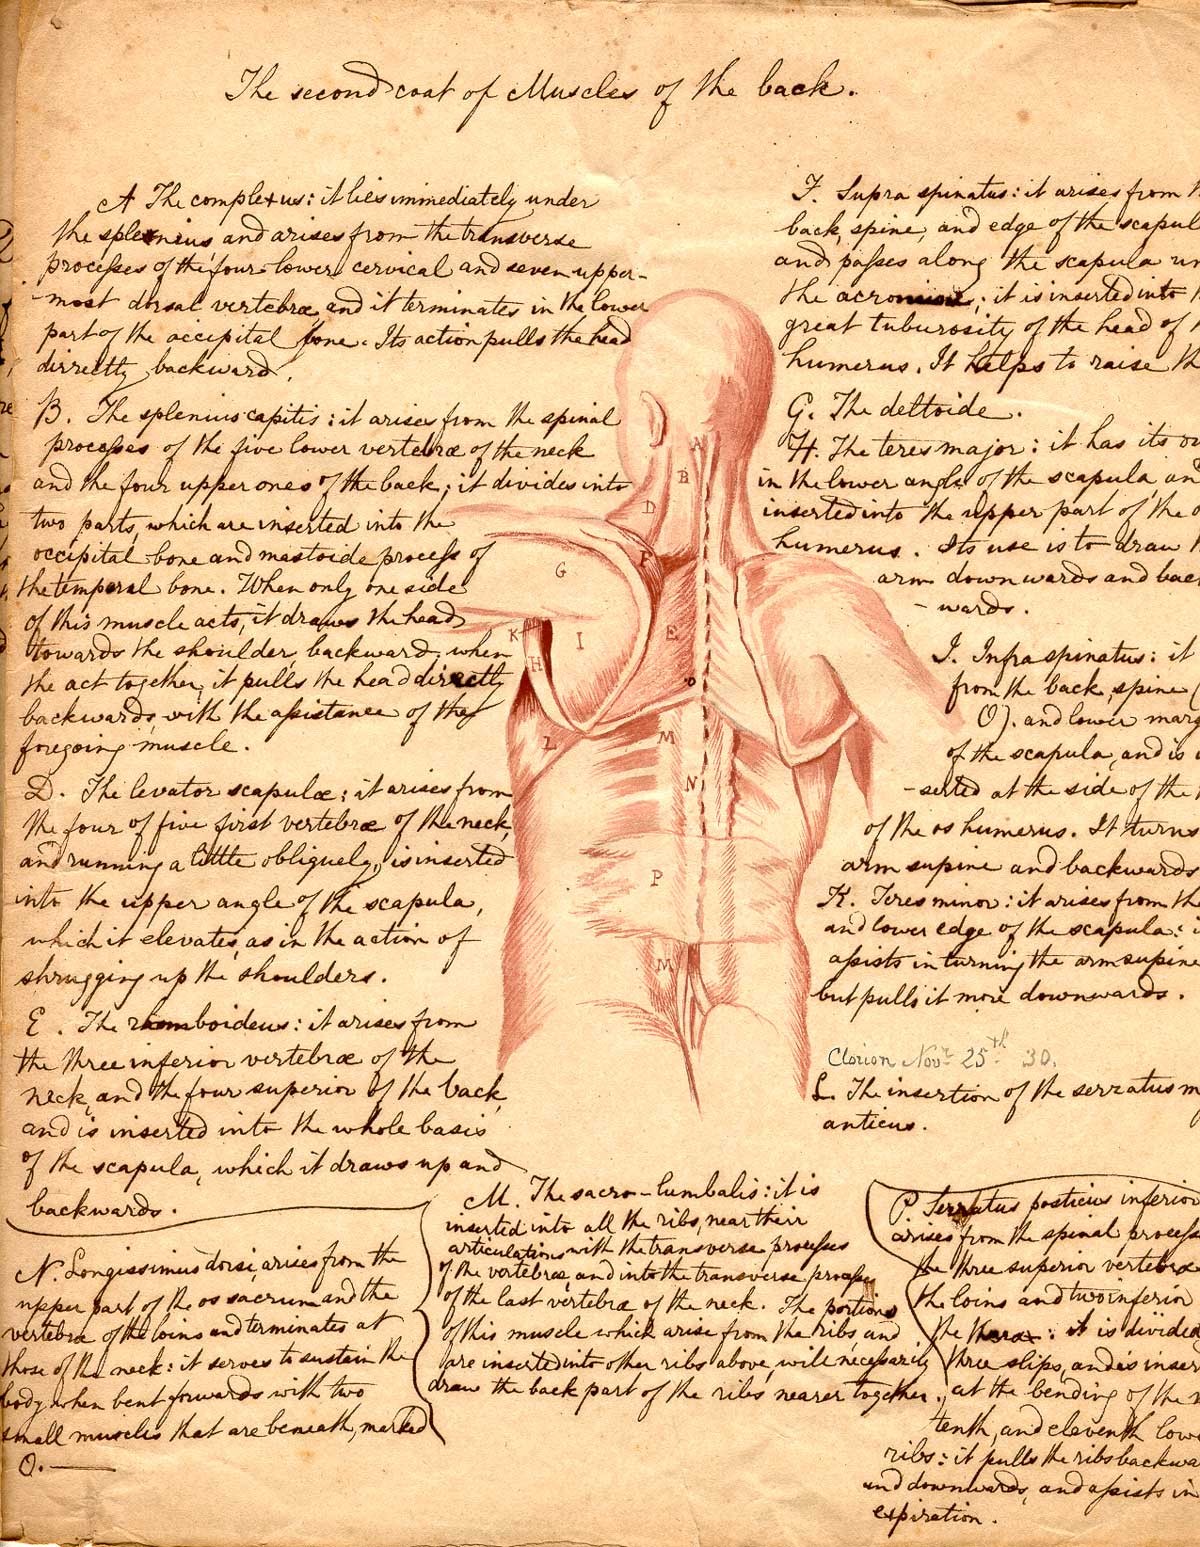 The second coat of Muscles of the back.
A The complexus: it lies immediately under
the splenius and arises from the transverse
processes of the four lower cervical and seven upper-
-most dorsal vertebræ and it terminates in the lower
part of the occipital bone. Its action pulls the head
dirrectly backward.
B. The splenius capitis: it arises from the spinal
processes of the five lower vertebræ of the neck
and the four upper ones of the back; it divides into
two parts, which are inserted into the
occipital bone and mastoide process of
the temporal bone. When only one side
of this muscle acts, it draws the head
towards the shoulder, backward; when
the act together, it pulls the head directly
backwards, with the assistance of the
foregoing muscle.
D. The levator scapulæ: it arises from
the four of five first vertebræ of the neck,
and running a little obliquely, is inserted
into the upper angle of the scapula,
which it elevates, as in the action of
shrugging up the shoulders.
E. The romboideus: it arises from
the three inferior vertebræ of the
neck, and the four superior of the back,
and is inserted into the whole basis
of the scapula, which it draws up and
backwards.
N. Longissimus dorsi, arises from the
upper part of the os sacrum and the
vertebræ of the loins and terminates at
those of the neck: it serves to sustain the
body when bent forwards with two
small muscles that are beneath, marked
O.
M. The sacro-lumbalis: it is
inserted into all the ribs, near their
articulations with the transverse processes
of the vertebræ, and into the transverse process
of the last vertebræ of the neck. The portions
of this muscle which arise from the ribs and
are inserted into other ribs above, will necessarily
draw the back part of the ribs nearer together.
F. Supra spinatus: it arises from
back, spine, and edge of the scapul
and passes along the scapula un
the acromion; it is inserted into
great tuburosity of the head of
humerus. It helps to raise th
G. The deltoide.
H. The teres major: it has its or
in the lower angle of the scapula, an
inserted into the upper part of the o
humerus. Its use is to draw
arm downwards and back
-wards.
I. Infra spinatus: it
from the back, spine (
O). and lower marg
of the scapula, and is i
-serted at the side of the
of the os humerus. It turns
arm supine and backwards
K. Teres minor: it arises from the
and lower edge of the scapula: i
assists in turning the arm supine
but pulls it more downwards.
Clorion Novr. 25th. 30.
L. The insertion of the serratus m
anticus.
P. Serratus posticus inferior
arises from the spinal process
the three superior vertebræ
the loins and two inferior
the thorax: it is divided
three slips, and is inser
at the bending of the n
tenth, and eleventh low
ribs: it pulls the ribs backwa
and downwards, and assists in
expiration.
A
B
D
F
G
E
K
I
H
O
L
M
N
P
M